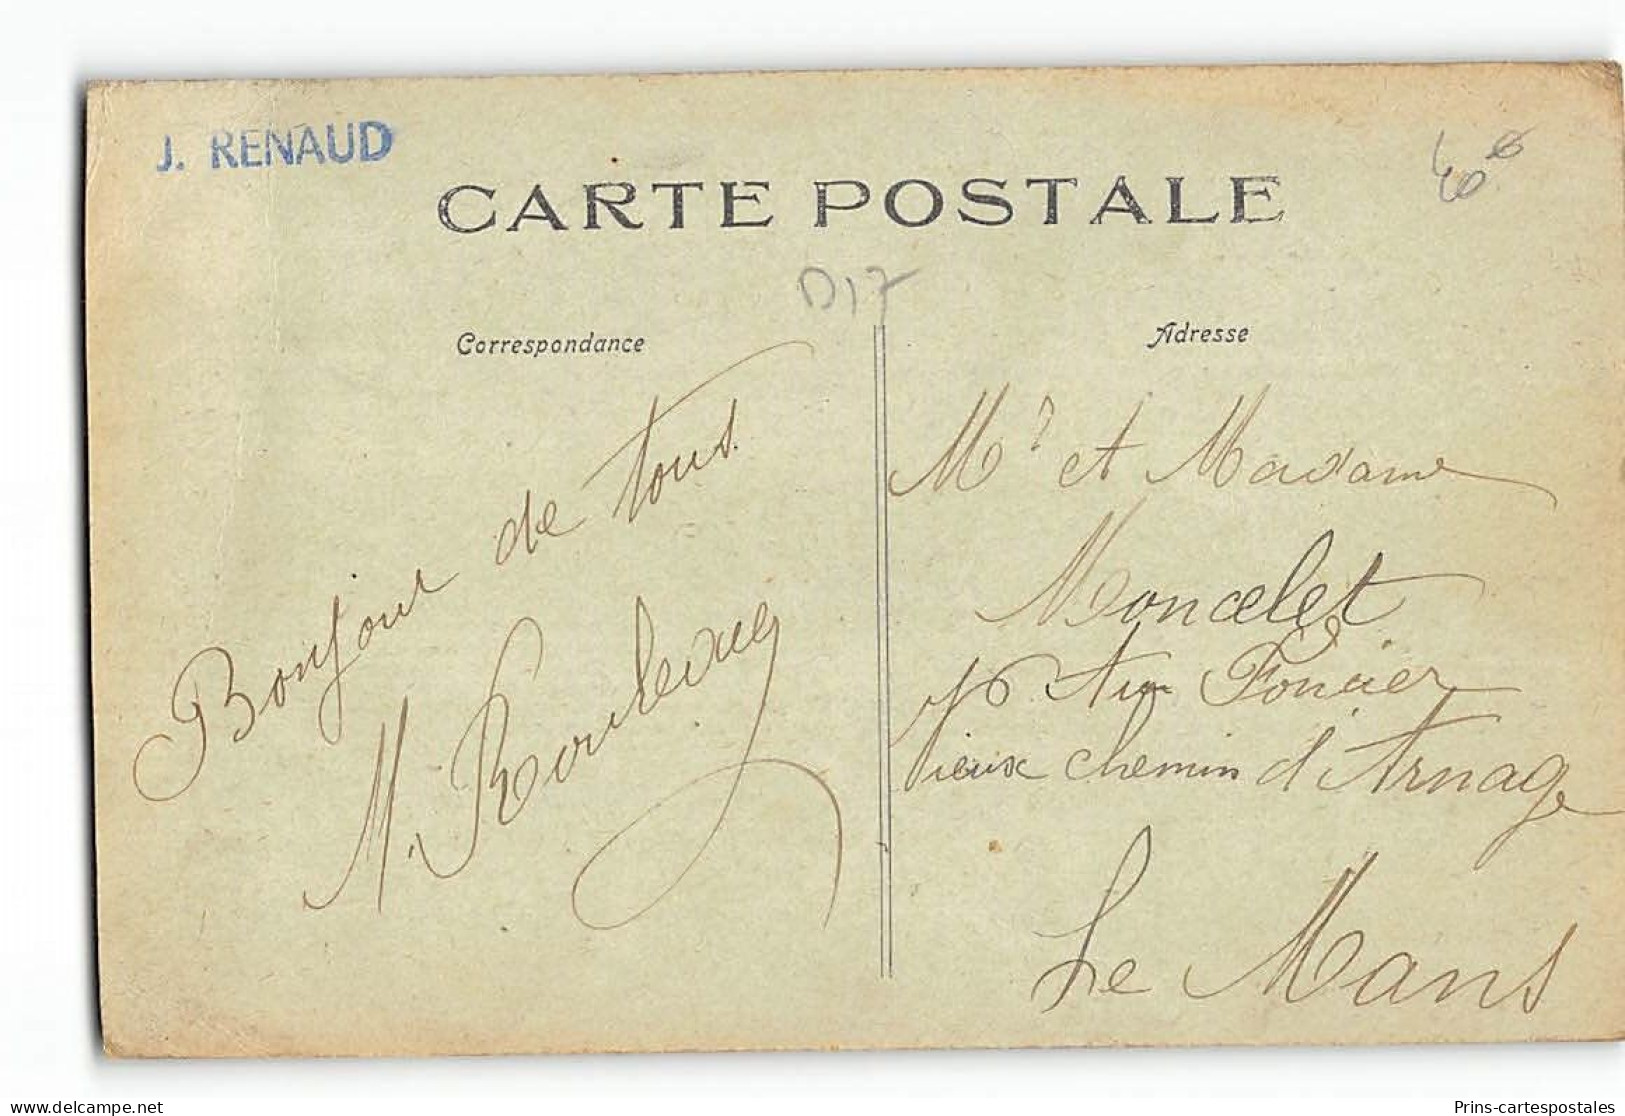 J. RENAUD
CARTE POSTALE
40
D17
Correspondance
Adresse
Bonjour de tous
M. Rouleau
Mr et Madame
Moncelet
Au Foncier
Vieux chemin d'Arnage
Le Mans
delcampe.net
Prins-cartespostales